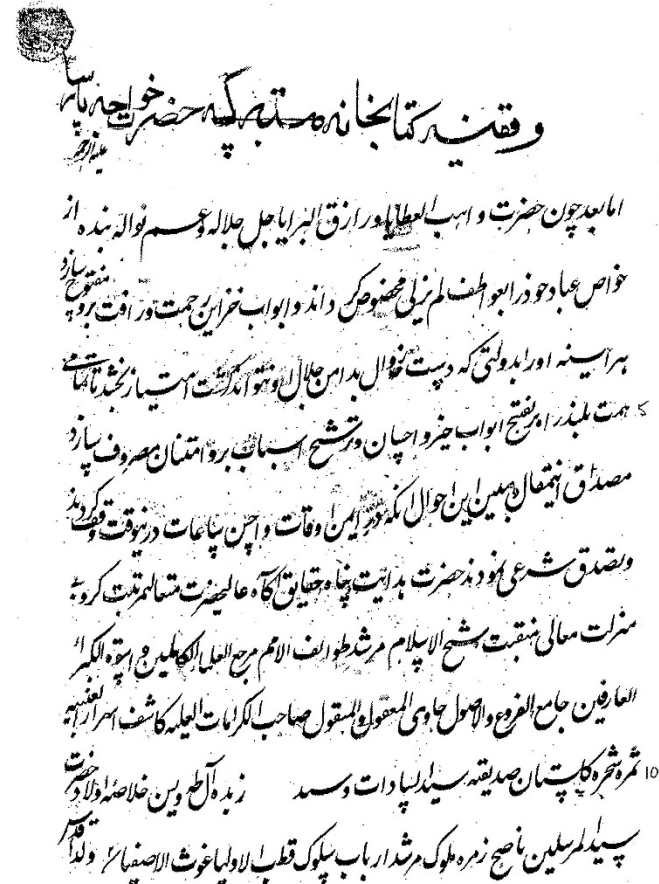 وقفیه کتابخانه متبرکه حضرت خواجه پارسا
علیه الرحمه
اما بعد چون حضرت واهب العطایا و رازق البرایا جل جلاله و عم نواله بنده از
خواص عباد خود را بعواطف لم یزلی مخصوص کرداند و ابواب خزاین رحمت و رافت برو مفتوح سازد
هر آینه او را بدولتی که دست زوال بدامن جلال او نتواند امتیاز بخشد تا تمامی
۵ همت بلند را بر تفتیح ابواب خیر و احسان و ترشیح اسباب بر و امتنان مصروف سازد
مصداق اینمقال و مبین این احوال آنکه در ایمن اوقات و احسن ساعات درینوقت وقف کردند
و تصدق شرعی نمودند حضرت هدایت پناه حقایق آکاه عالیحضرت متعالیمرتبت کروبی
منزلت معالی منقبت شیخ الاسلام مرشد طوایف الامم مرجع العلما الکاملین اسوة الکبراء
العارفین جامع الفروع والاصول حاوی المعقول والمنقول صاحب الکرامات العلیه کاشف اسرار الغیبیه
۱۰ ثمره شجره کلستان صدیقه سید السادات و سند زبده آل طه و یس خلاصه اولاد حضرت
سید المرسلین ناصح زمره ملوک مرشد ارباب سلوک قطب الاولیا غوث الاصفیا